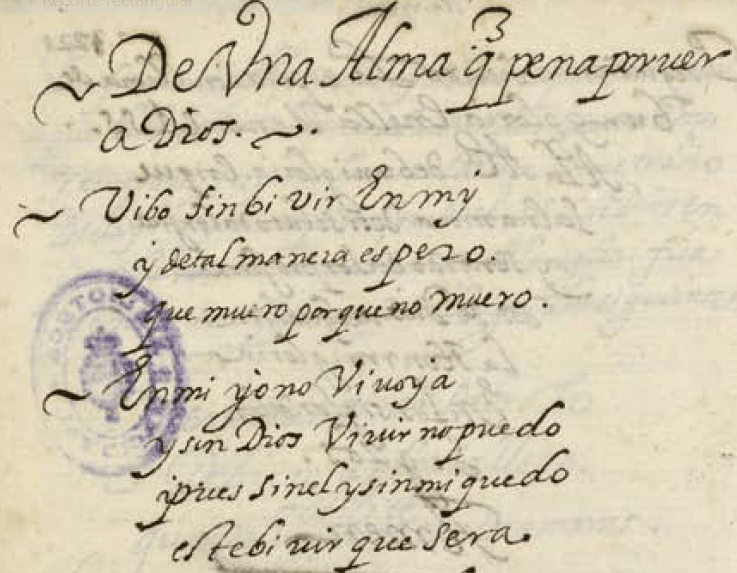 De Vna Alma q̃ pena por ver
a Dios.
Vibo sin bi vir En my
y de tal manera espero.
que muero porque no muero.
En mi yo no Vivo ya
y sin Dios Vivir no puedo
pues sin el y sin mi quedo
este bi vir que sera.